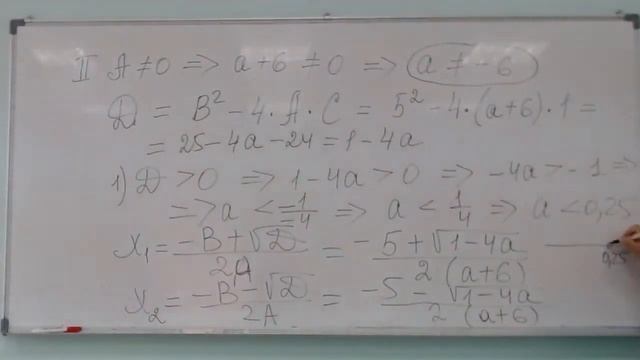 II A ≠ 0 => a+6 ≠ 0 => a ≠ -6
D = B² - 4·A·C = 5² - 4·(a+6)·1 =
= 25 - 4a - 24 = 1 - 4a
1) D > 0 => 1 - 4a > 0 => -4a > -1 =>
=> a < -1/-4 => a < 1/4 => a < 0,25
x₁ = (-B + √D)/2A = (-5 + √(1-4a))/2(a+6)
0,25
x₂ = (-B - √D)/2A = (-5 - √(1-4a))/2(a+6)